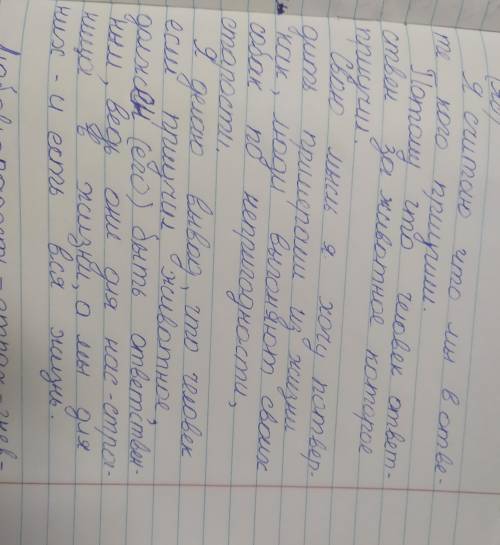 (31)
Я считаю что мы в отве-
те кого приучим.
Потому что человек ответ-
ствен за животное которое
приучил.
Свою мысль я хочу подтвер-
дить примерами из жизни
как, люди выгоняют своих
собак по непригодности,
старости.
Я делаю вывод, что человек
если приучил животное,
должен (его) быть ответствен-
ним, ведь они для нас - стра-
ница жизни, а мы для
них - и есть вся жизнь.